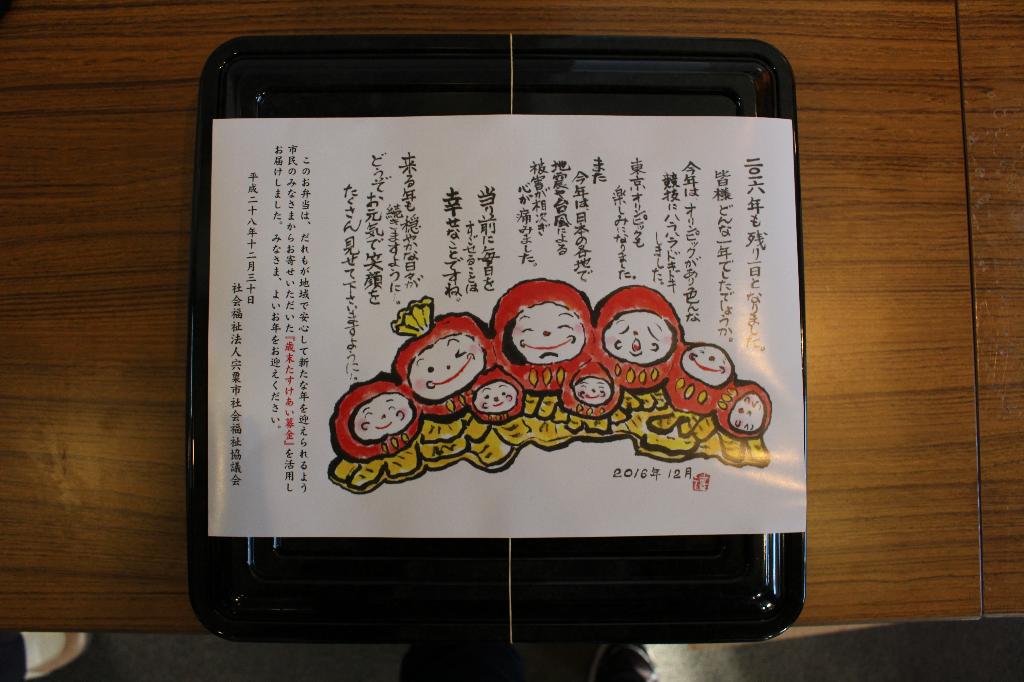 二〇一六年も残り一日となりました。
皆様どんな一年でしたでしょうか。
今年はオリンピックがあり色んな
競技にハラハラドキドキ
しました。
東京オリンピックも
楽しみになりました。
また
今年は日本の各地で
地震や台風による
被害が相次ぎ
心が痛みました。
当り前に毎日を
すごせることは
幸せなことですね。
来る年も穏やかな日々が
続きますように…
どうぞお元気で笑顔を
たくさん見せて下さいますように…
2016年12月
このお弁当は、だれもが地域で安心して新たな年を迎えられるよう
市民のみなさまからお寄せいただいた『歳末たすけあい募金』を活用し
お届けしました。みなさま、よいお年をお迎えください。
平成二十八年十二月三十日
社会福祉法人宍粟市社会福祉協議会